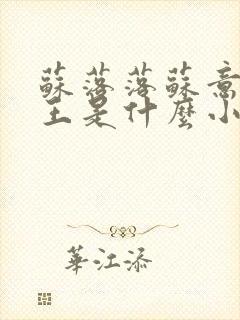 蘇落落蘇意
王是什麼小
華江添